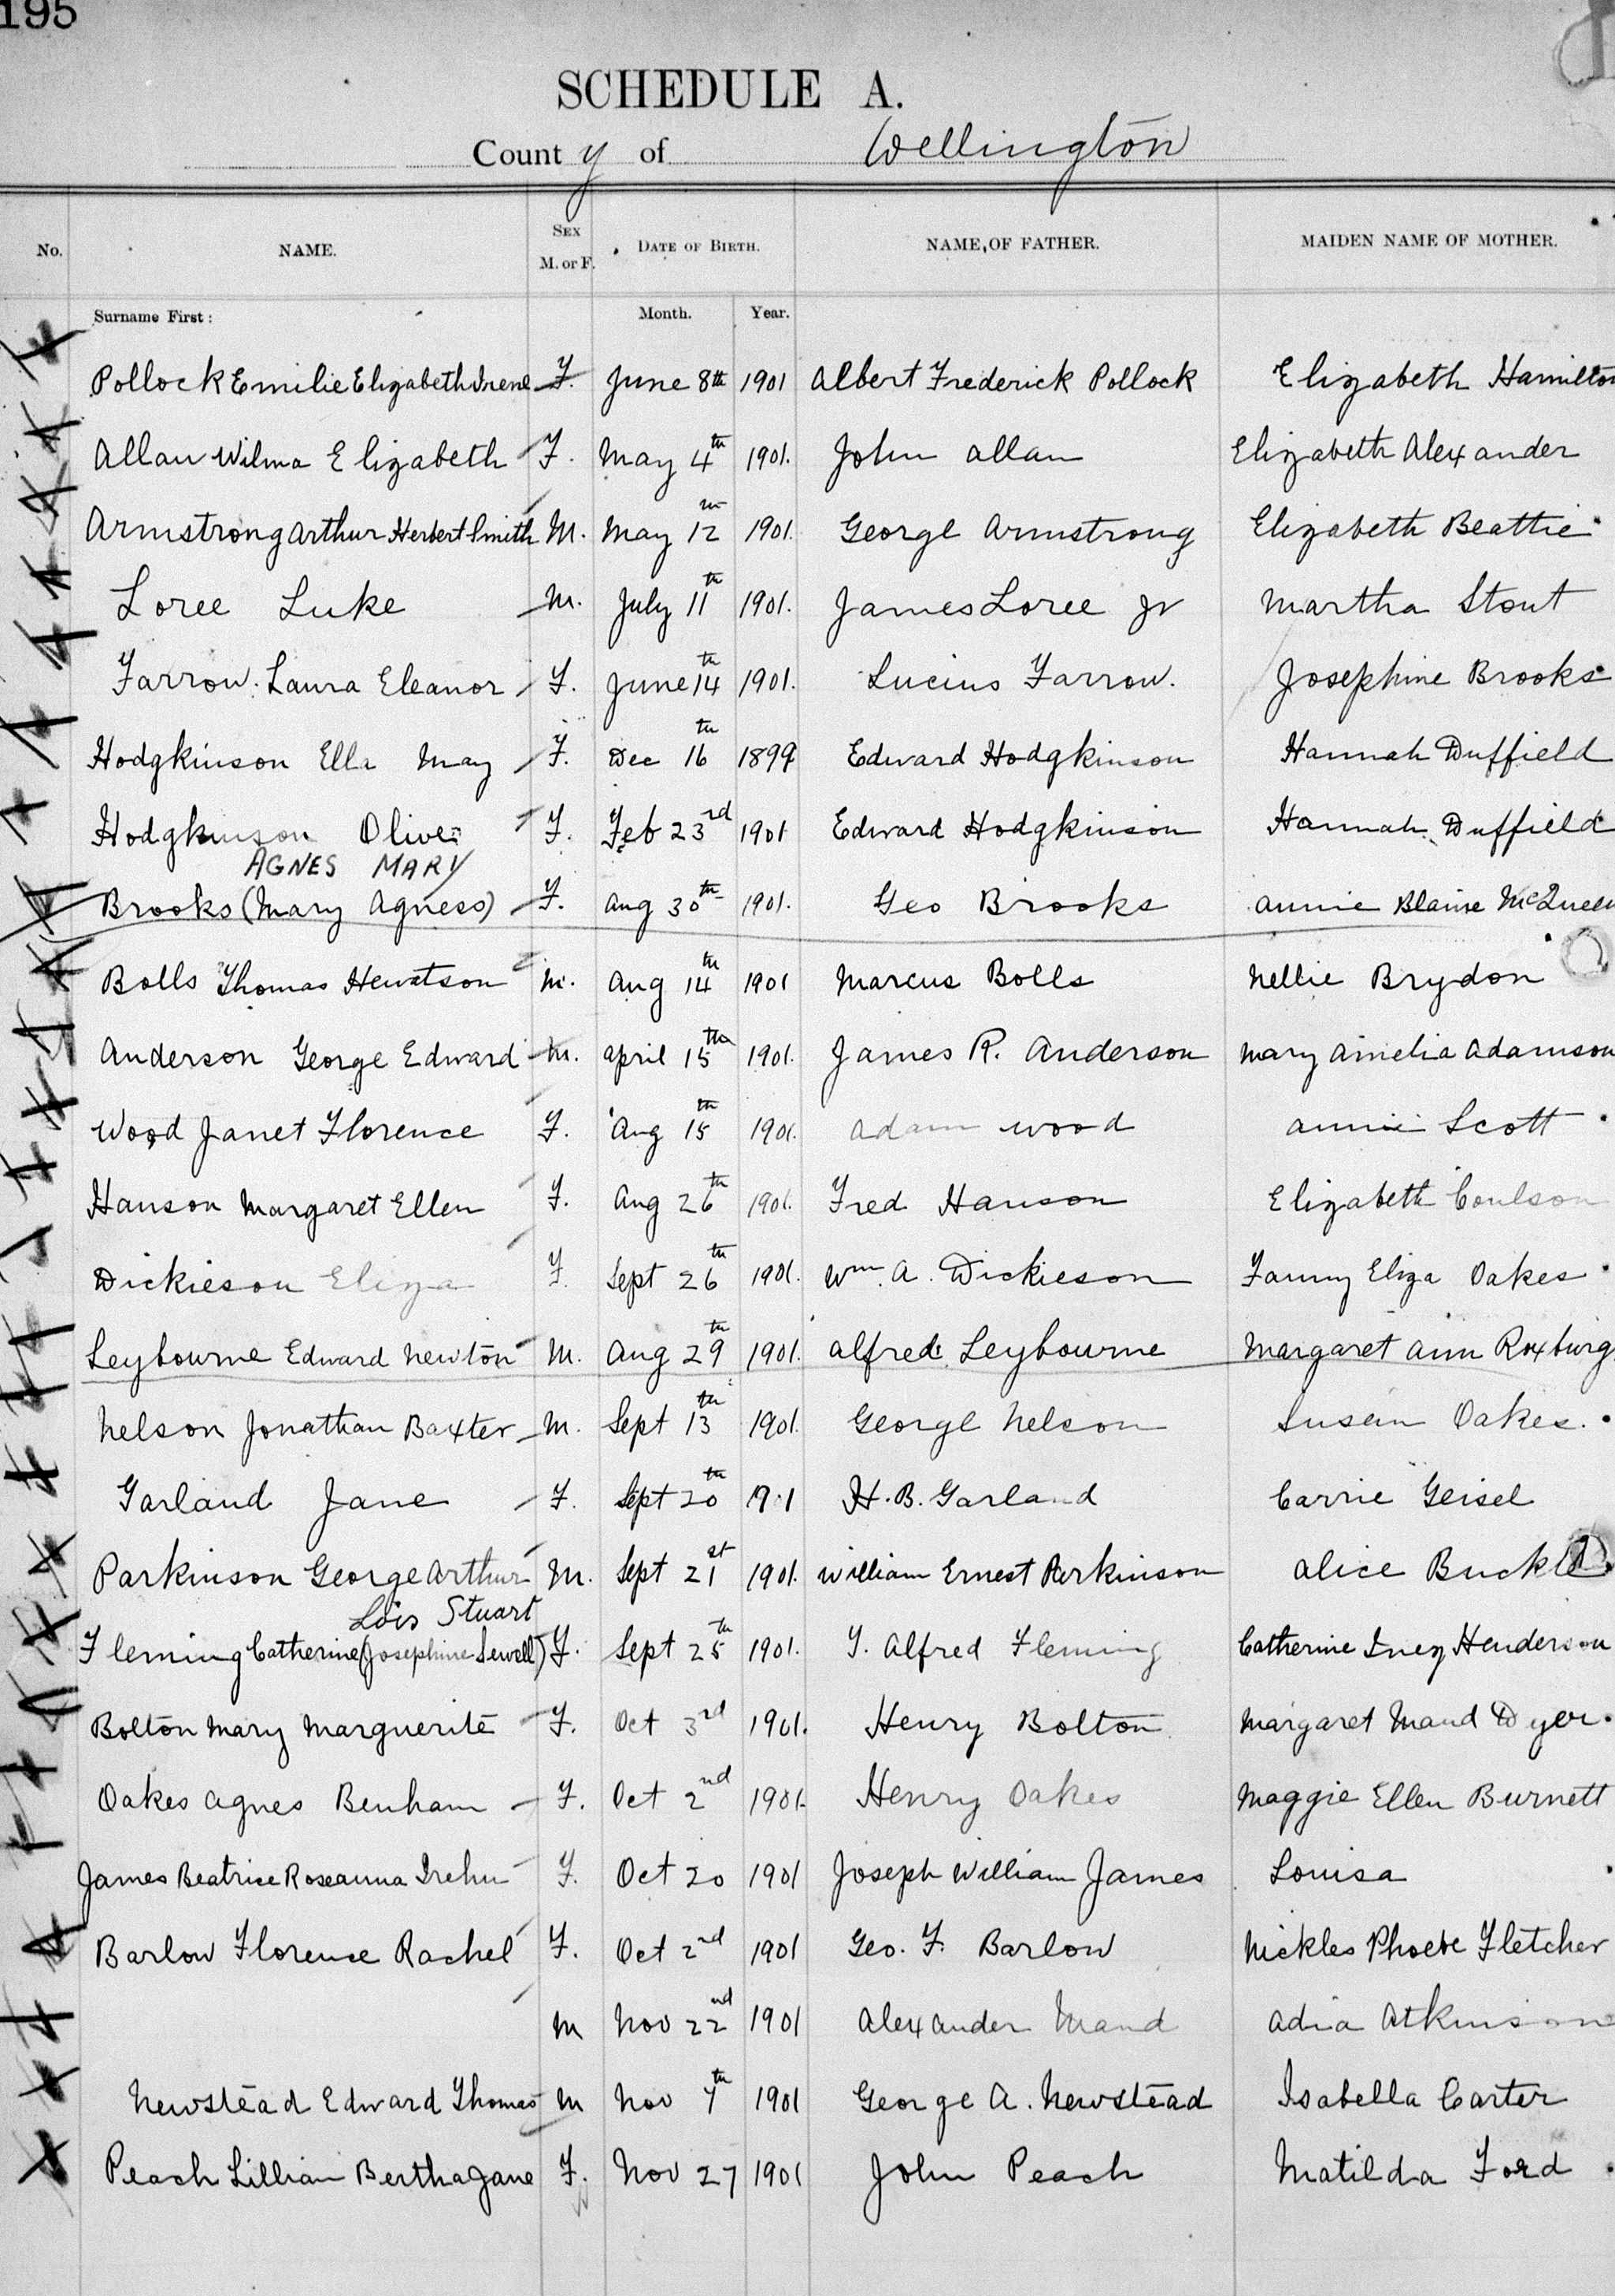 195
SCHEDULE A.
County of Wellington
No. NAME. SEX M. or F. DATE OF BIRTH. NAME OF FATHER. MAIDEN NAME OF MOTHER.
Surname First: Month. Year.
Pollock Emilie Elizabeth Irene F. June 8th 1901 Albert Frederick Pollock Elizabeth Hamilton
Allan Wilma Elizabeth F. May 4th 1901. John Allan Elizabeth Alexander
Armstrong Arthur Herbert Smith M. May 12th 1901. George Armstrong Elizabeth Beattie
Loree Luke M. July 11th 1901. James Loree Jr Martha Stout
Farrow. Laura Eleanor F. June 14th 1901. Lucius Farrow. Josephine Brooks
Hodgkinson Ella May F. Dec 16th 1899 Edward Hodgkinson Hannah Duffield
Hodgkinson Olive F. Feb 23rd 1901 Edward Hodgkinson Hannah Duffield
AGNES MARY
Brooks (Mary Agness) F. Aug 30th 1901. Geo Brooks Annie Blaine McQueen
Bolls Thomas Hewatson M. Aug 14th 1901 Marcus Bolls Nellie Brydon
Anderson George Edward M. April 15th 1901. James R. Anderson Mary Amelia Adamson
Wood Janet Florence F. Aug 15th 1901. Adam Wood Annie Scott
Hanson Margaret Ellen F. Aug 26th 1901. Fred Hanson Elizabeth Coulson
Dickieson Eliza F. Sept 26th 1901. Wm. A. Dickieson Fanny Eliza Oakes
Leybourne Edward Newton M. Aug 29th 1901. Alfred Leybourne Margaret Ann Roxburg
Nelson Jonathan Baxter M. Sept 13th 1901. George Nelson Susan Oakes.
Garland Jane F. Sept 20th 1901 H. B. Garland Carrie Geisel
Parkinson George Arthur M. Sept 21st 1901. William Ernest Parkinson Alice Buckle
Lois Stuart
Fleming Catherine (Josephine Sewell) F. Sept 25th 1901. T. Alfred Fleming Catherine Inez Henderson
Bolton Mary Marguerite F. Oct 3rd 1901. Henry Bolton Margaret Maud Dyer.
Oakes Agnes Benham F. Oct 2nd 1901. Henry Oakes Maggie Ellen Burnett
James Beatrice Roseanna F. Oct 20 1901 Joseph William James Louisa
Barlow Florence Rachel F. Oct 2nd 1901 Geo. F. Barlow Nickles Phoebe Fletcher
M Nov 22nd 1901 Alexander Maud Adia Atkinson
Newstead Edward Thomas M Nov 7th 1901 George A. Newstead Isabella Carter
Peach Lillian Bertha Jane F. Nov 27 1901 John Peach Matilda Ford